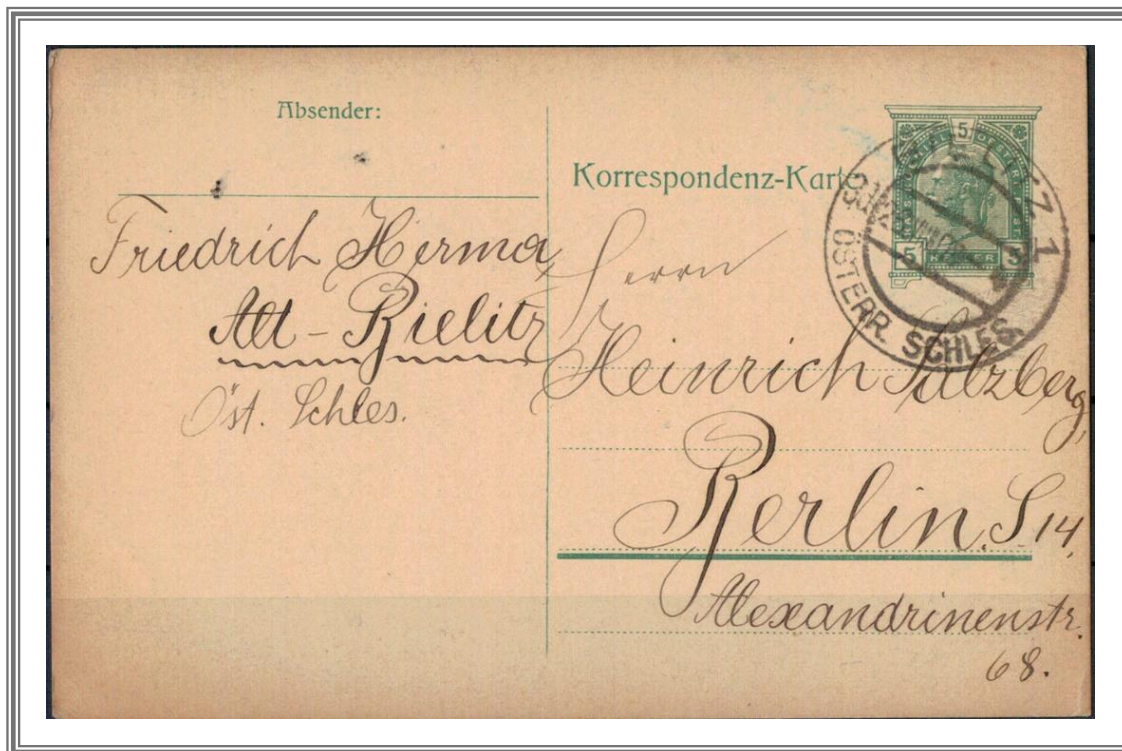 Absender:
Friedrich Herma
Alt-Bielitz
Öst. Schles.
Korrespondenz-Karte
5
5 HELLER 5
BIELITZ 1
ÖSTERR. SCHLES.
Herrn
Heinrich Salzberg,
Berlin, S 14,
Alexandrinenstr.
68.